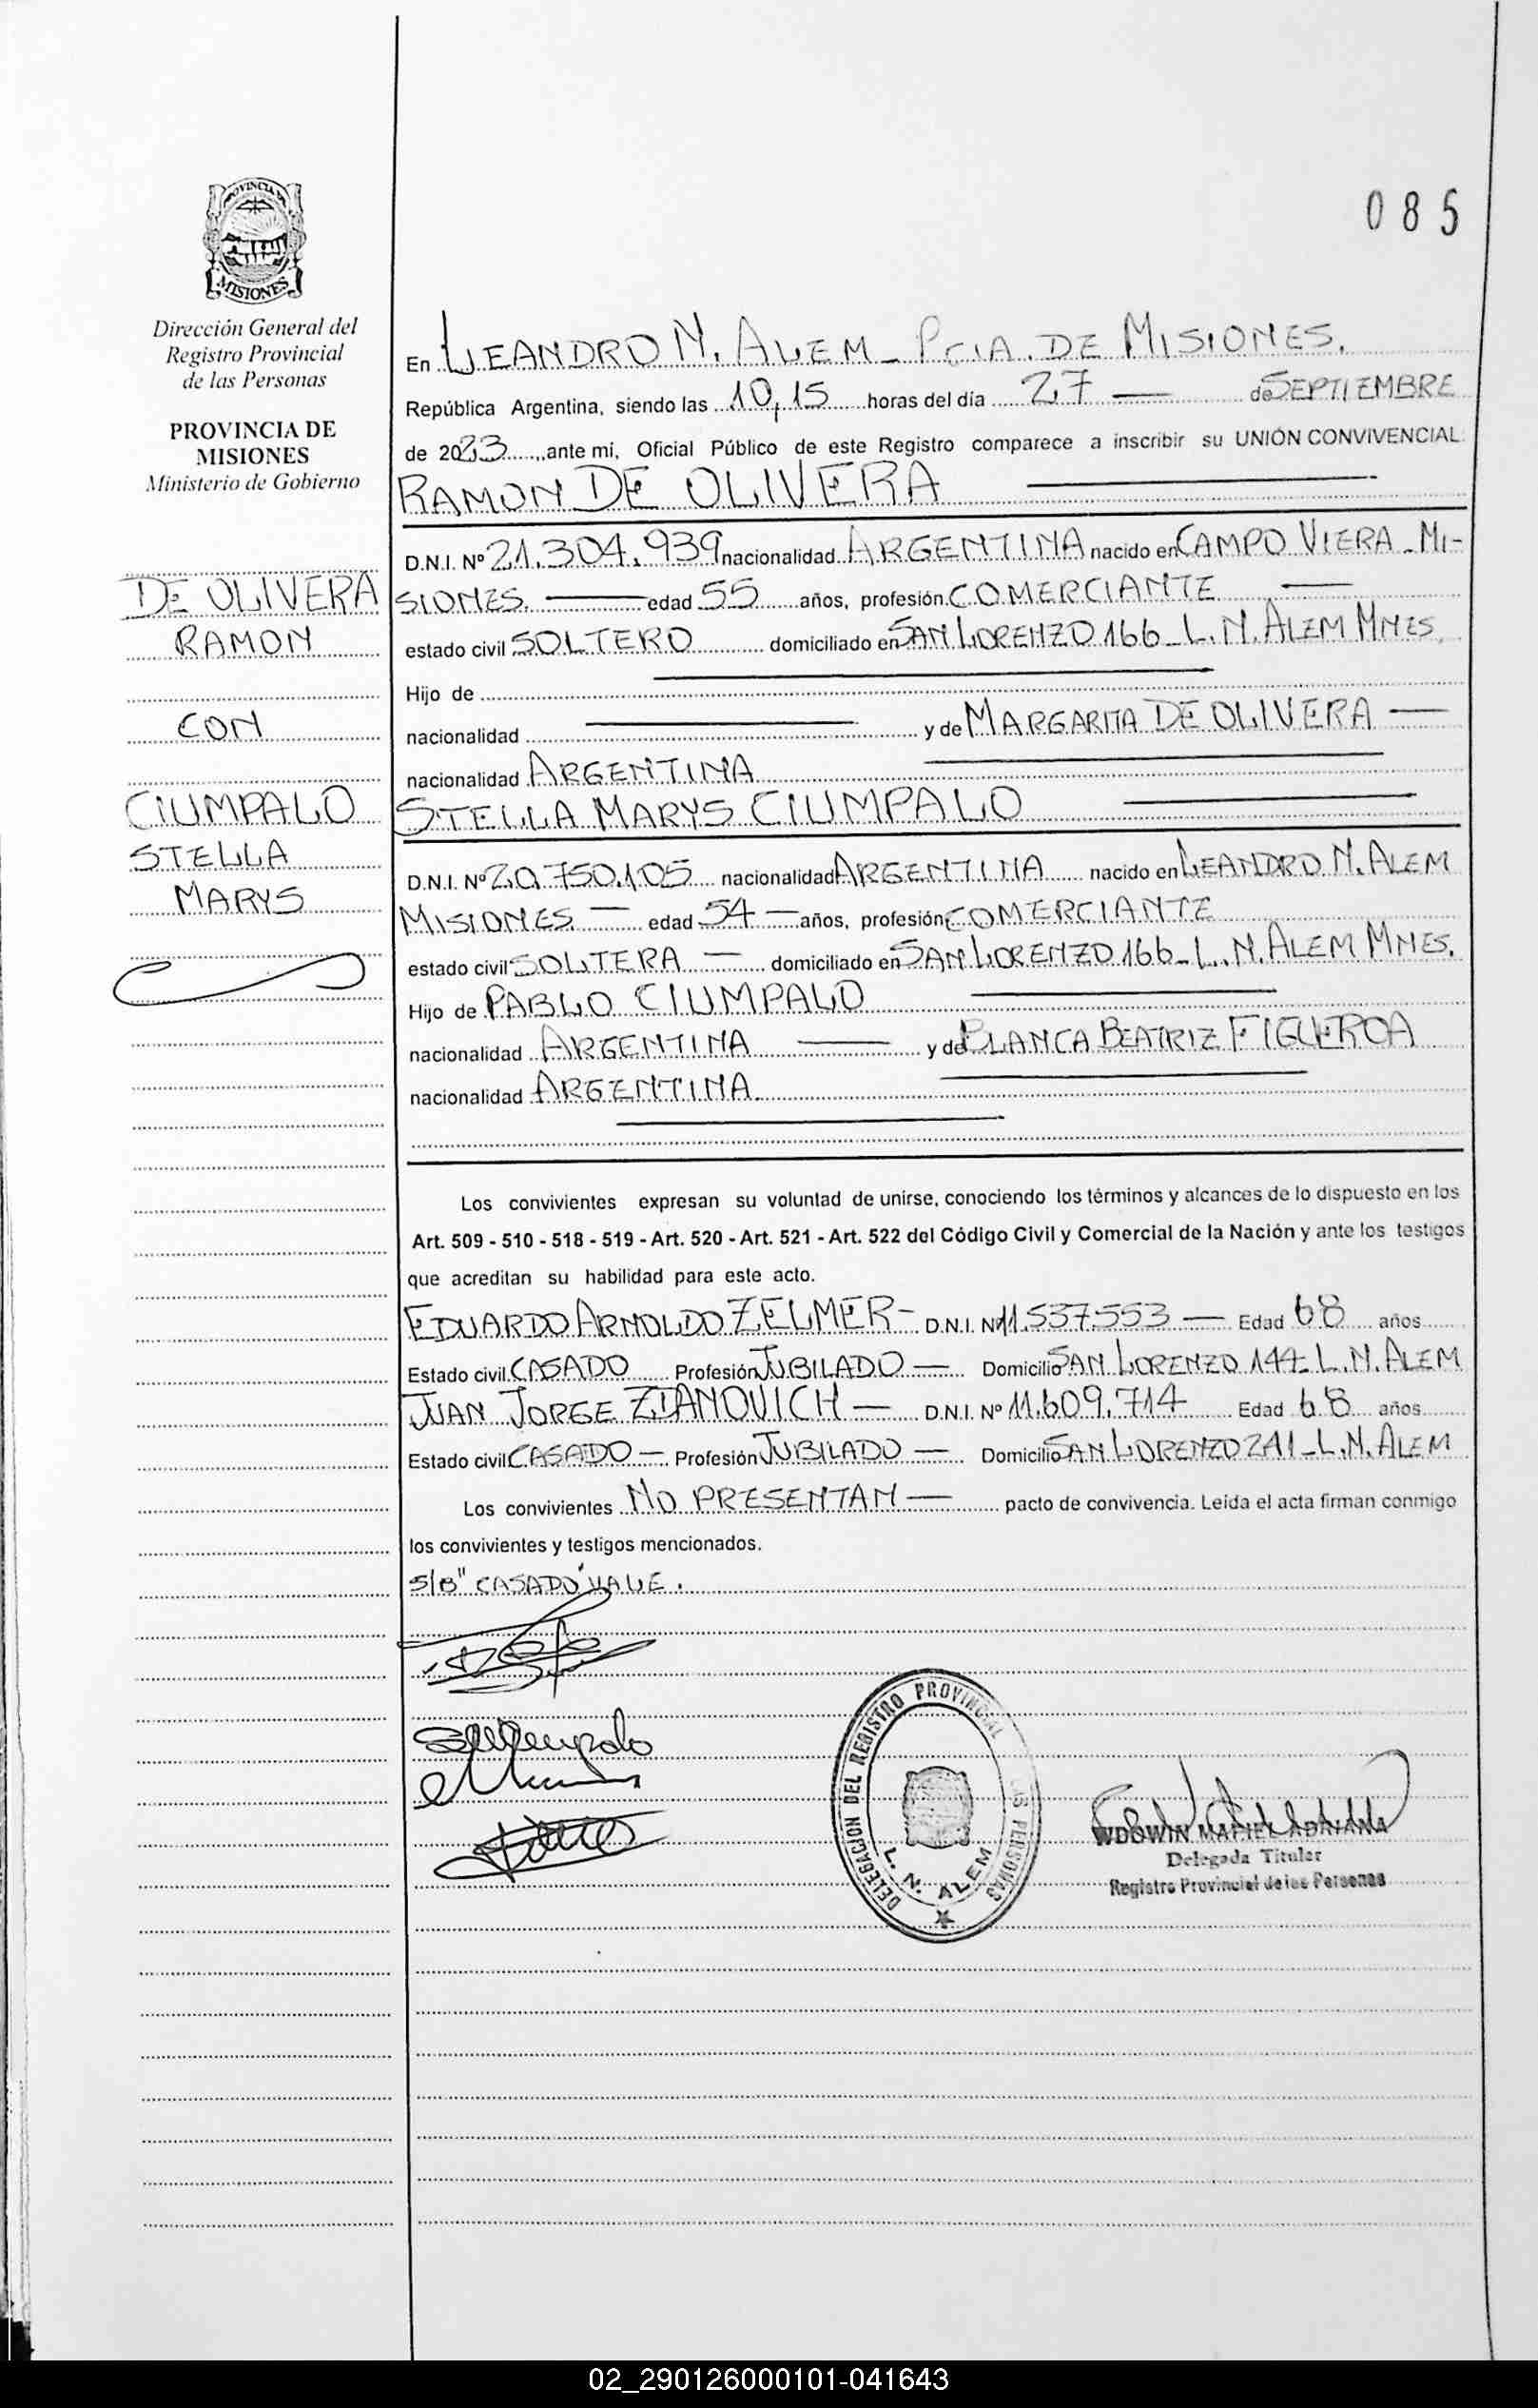 PROVINCIA DE
MISIONES
Dirección General del
Registro Provincial
de las Personas
PROVINCIA DE
MISIONES
Ministerio de Gobierno
DE OLIVERA
RAMON
CON
CIUMPALO
STELLA
MARYS
085
En LEANDRO N. ALEM - PCIA. DE MISIONES.
República Argentina, siendo las 10,15 horas del día 27 — de SEPTIEMBRE
de 2023 ante mi, Oficial Público de este Registro comparece a inscribir su UNIÓN CONVIVENCIAL:
RAMON DE OLIVERA
D.N.I. Nº 21.304.939 nacionalidad ARGENTINA nacido en CAMPO VIERA - MI-
SIONES. — edad 55 años, profesión COMERCIANTE —
estado civil SOLTERO domiciliado en SAN LORENZO 166 - L.N. ALEM MNES.
Hijo de
nacionalidad y de MARGARITA DE OLIVERA —
nacionalidad ARGENTINA
STELLA MARYS CIUMPALO
D.N.I. Nº 20.750.105 nacionalidad ARGENTINA nacido en LEANDRO N. ALEM
MISIONES — edad 54 — años, profesión COMERCIANTE
estado civil SOLTERA — domiciliado en SAN LORENZO 166 - L.N. ALEM MNES.
Hijo de PABLO CIUMPALO
nacionalidad ARGENTINA — y de BLANCA BEATRIZ FIGUEROA
nacionalidad ARGENTINA
Los convivientes expresan su voluntad de unirse, conociendo los términos y alcances de lo dispuesto en los
Art. 509 - 510 - 518 - 519 - Art. 520 - Art. 521 - Art. 522 del Código Civil y Comercial de la Nación y ante los testigos
que acreditan su habilidad para este acto.
EDUARDO ARNOLDO ZELMER - D.N.I. Nº 11.537.553 — Edad 68 años
Estado civil CASADO Profesión JUBILADO — Domicilio SAN LORENZO 144 - L.N. ALEM
JUAN JORGE ZDANOVICH — D.N.I. Nº 11.609.714 Edad 68 años
Estado civil CASADO — Profesión JUBILADO — Domicilio SAN LORENZO 241 - L.N. ALEM
Los convivientes NO PRESENTAN — pacto de convivencia. Leída el acta firman conmigo
los convivientes y testigos mencionados.
S/B "CASADO" VALE.
DELEGACION DEL REGISTRO PROVINCIAL DE LAS PERSONAS
L. N. ALEM
WDOWIN MARIEL ADRIANA
Delegada Titular
Registro Provincial de las Personas
02_290126000101-041643